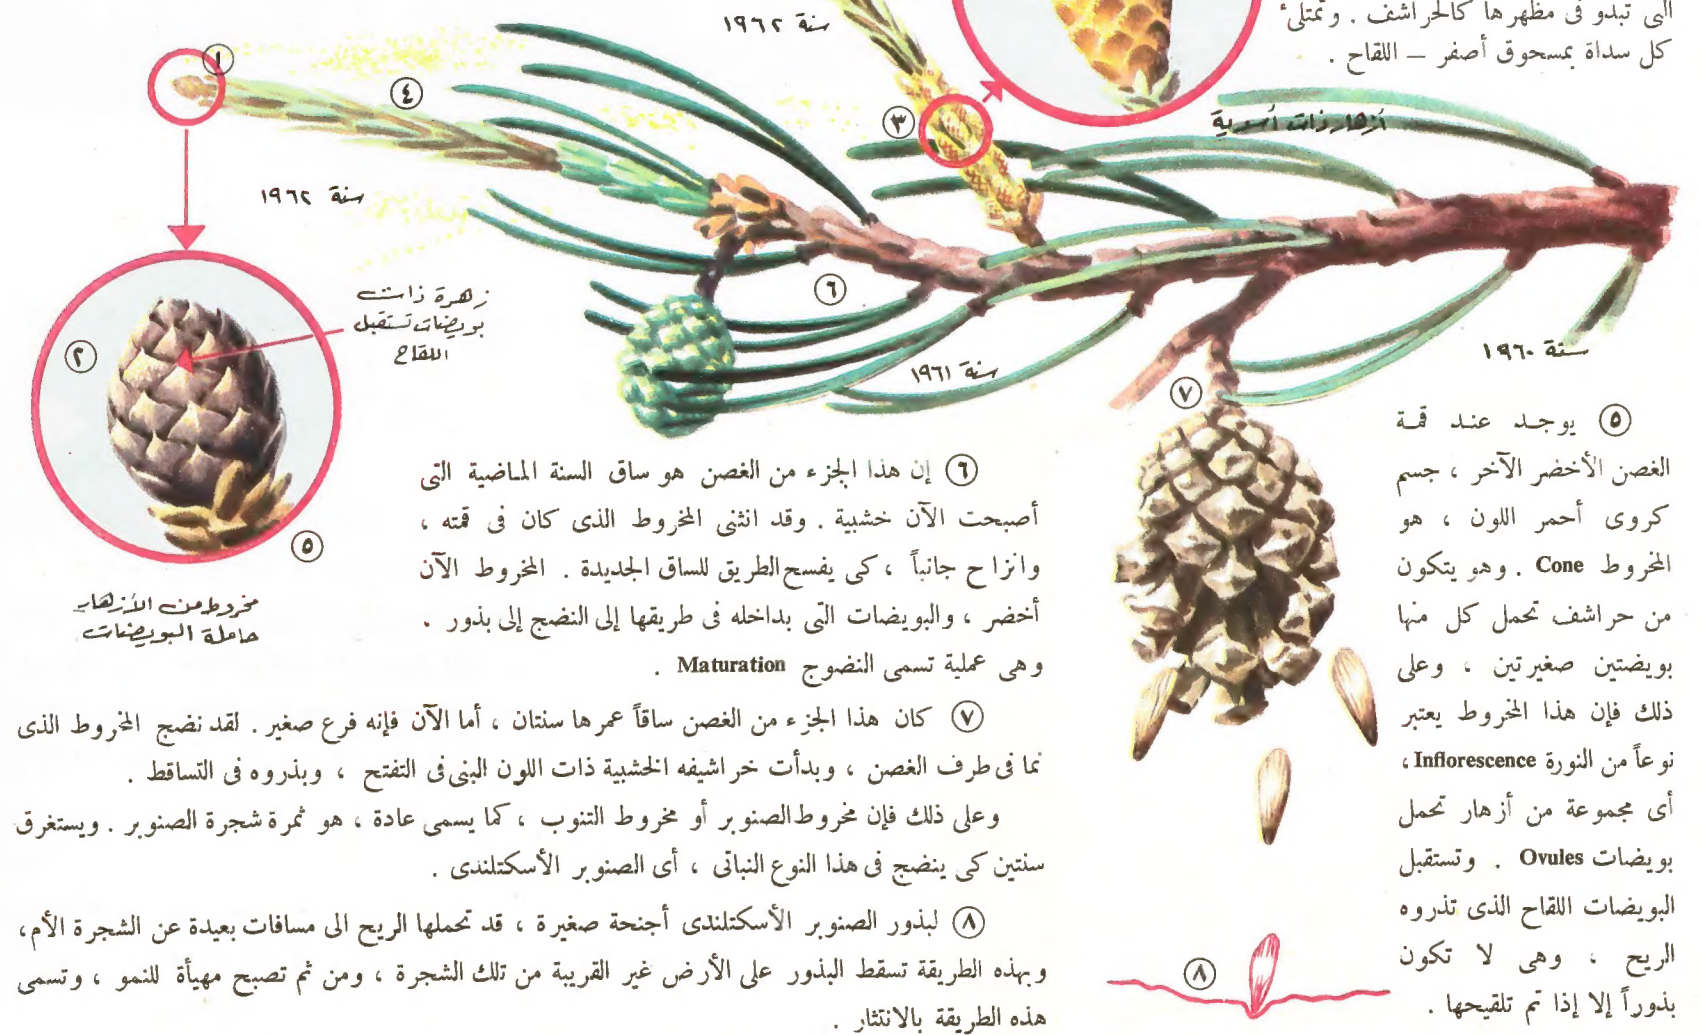 التى تبدو فى مظهرها كالحراشف . وتمتلئ
كل سداة بمسحوق أصفر – اللقاح .
سنة ١٩٦٢
١
٤
٣
أزهار ذات أسدية
سنة ١٩٦٢
زهرة ذات
بويضات تستقبل
اللقاح
٢
٦
سنة ١٩٦١
سنة ١٩٦٠
٧
٥
مخروط من الأزهار
حاملة البويضات
٥ يوجد عند قمة
الغصن الأخضر الآخر ، جسم
كروى أحمر اللون ، هو
المخروط Cone . وهو يتكون
من حراشف تحمل كل منها
بويضتين صغيرتين ، وعلى
ذلك فإن هذا المخروط يعتبر
نوعاً من النورة Inflorescence ،
أى مجموعة من أزهار تحمل
بويضات Ovules . وتستقبل
البويضات اللقاح الذى تذروه
الريح ، وهى لا تكون
بذوراً إلا إذا تم تلقيحها .
٦ إن هذا الجزء من الغصن هو ساق السنة الماضية التى
أصبحت الآن خشبية . وقد انثنى المخروط الذى كان فى قمته ،
وانزاح جانباً ، كى يفسح الطريق للساق الجديدة . المخروط الآن
أخضر ، والبويضات التى بداخله فى طريقها إلى النضج إلى بذور .
وهى عملية تسمى النضوج Maturation .
٧ كان هذا الجزء من الغصن ساقاً عمرها سنتان ، أما الآن فإنه فرع صغير . لقد نضج المخروط الذى
نما فى طرف الغصن ، وبدأت خراشيفه الخشبية ذات اللون البنى فى التفتح ، وبذروه فى التساقط .
وعلى ذلك فإن مخروط الصنوبر أو مخروط التنوب ، كما يسمى عادة ، هو ثمرة شجرة الصنوبر . ويستغرق
سنتين كى ينضج فى هذا النوع النباتى ، أى الصنوبر الأسكتلندى .
٨ لبذور الصنوبر الأسكتلندى أجنحة صغيرة ، قد تحملها الريح الى مسافات بعيدة عن الشجرة الأم ،
وبهذه الطريقة تسقط البذور على الأرض غير القريبة من تلك الشجرة ، ومن ثم تصبح مهيأة للنمو ، وتسمى
هذه الطريقة بالانتثار .
٨